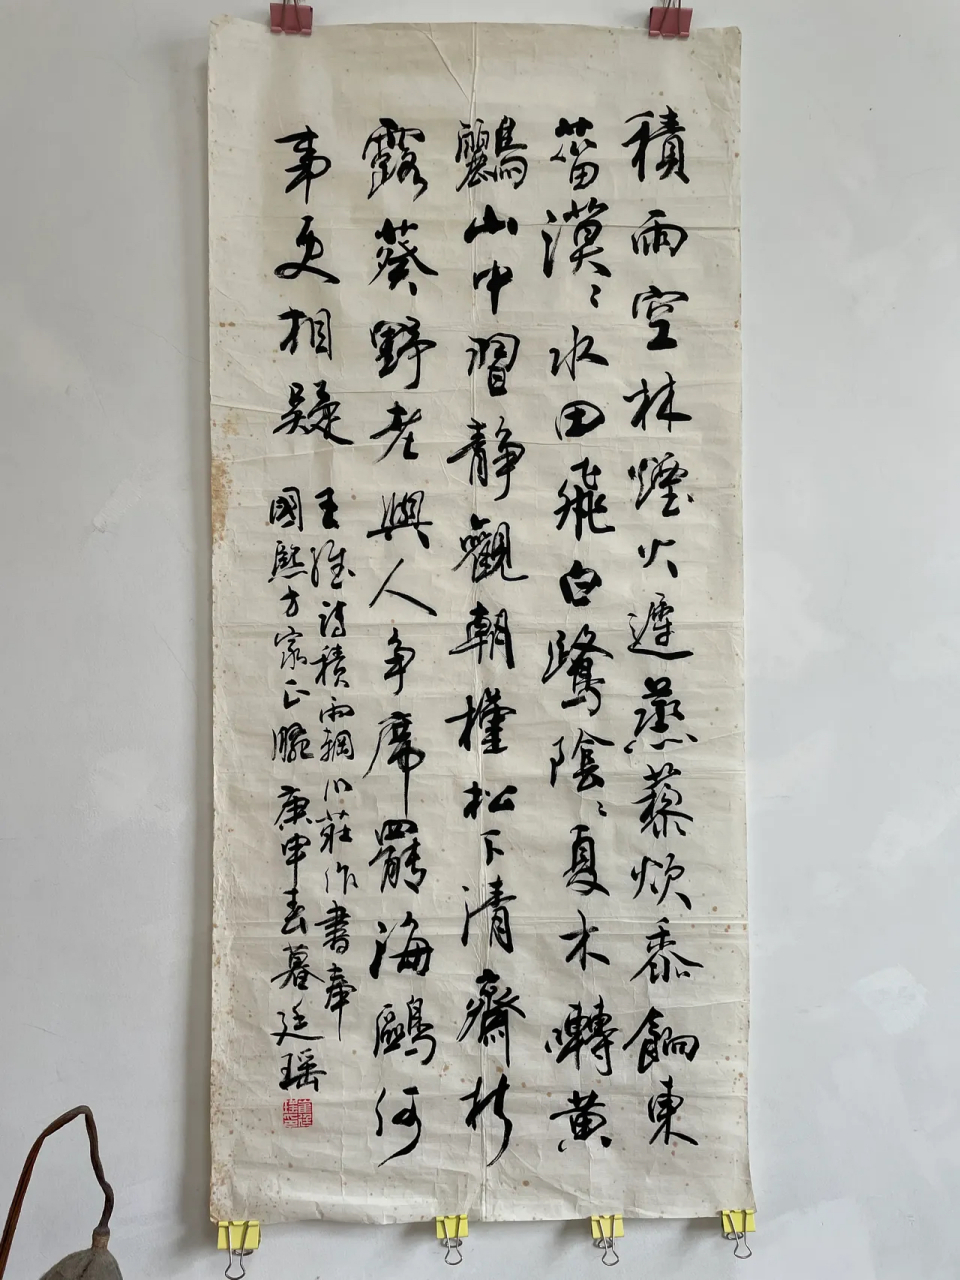 積雨空林煙火遲蒸藜炊黍餉東
菑漠〻水田飛白鷺陰〻夏木囀黃
鸝山中習靜觀朝槿松下清齋折
露葵野老與人争席罷海鷗何
事更相疑
王維詩積雨輞川莊作書奉
國熙方家正腕庚申春暮廷瑶